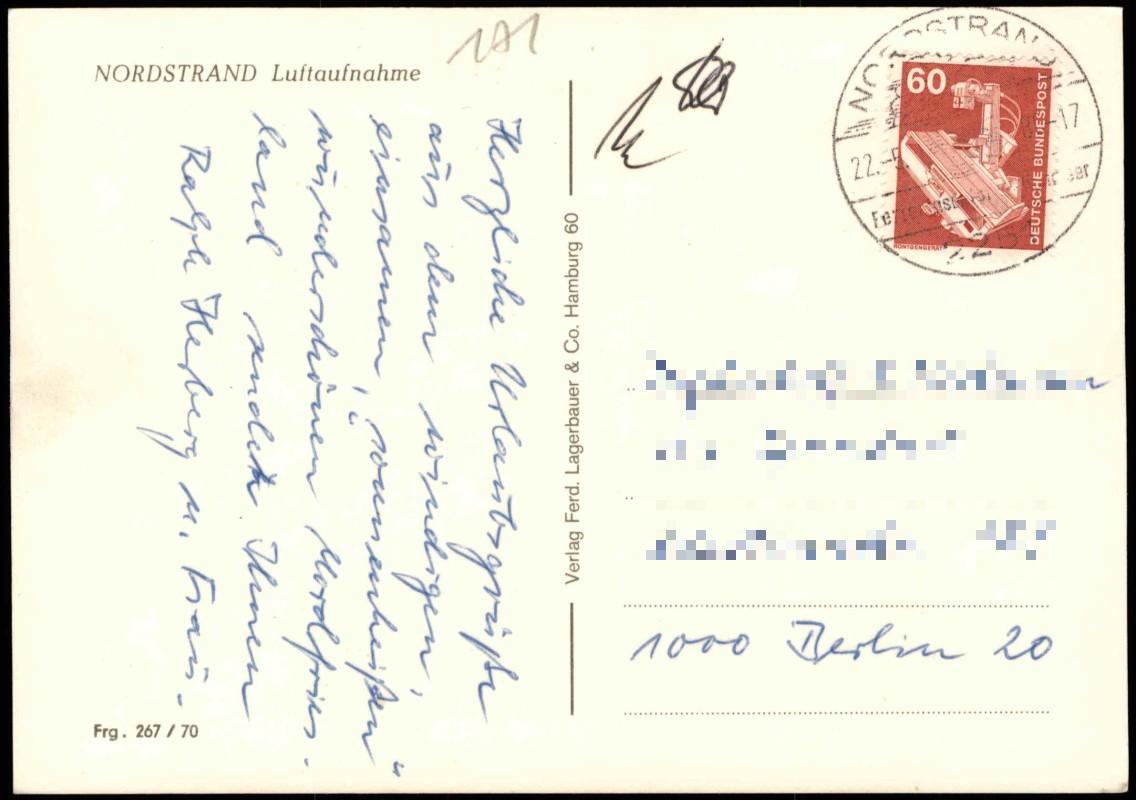 NORDSTRAND Luftaufnahme
Herzliche Urlaubsgrüße
aus dem windigen,
einsamen, "sonnenheißen"
wunderschönen Nordfries-
land sendet Ihnen
Ralph Herberg u. Frau.
Frg. 267 / 70
Verlag Ferd. Lagerbauer & Co. Hamburg 60
NORDSTRAND
22.-5.
-17
60
DEUTSCHE BUNDESPOST
RÖNTGENGERÄT
1000 Berlin 20